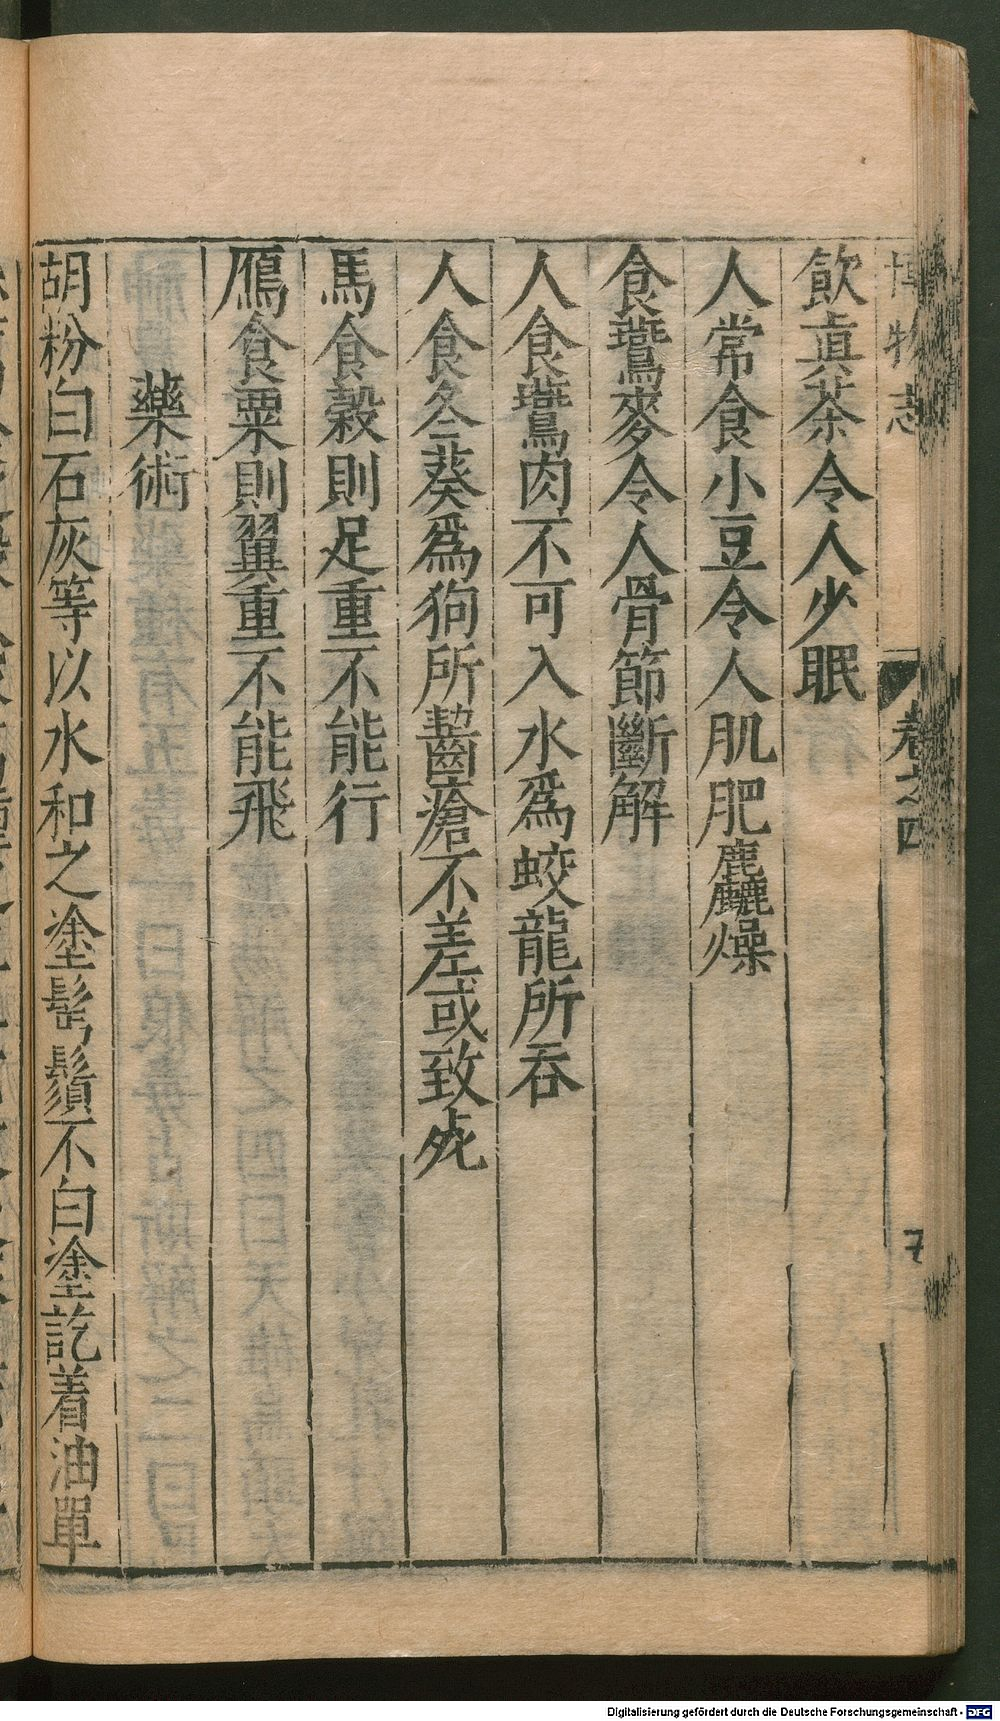 博物志 卷之四
飲真茶令人少眠
人常食小豆令人肌肥麤燥
食鷰麥令人骨節斷解
人食鷰肉不可入水爲蛟龍所吞
人食冬葵爲狗所齧瘡不差或致死
馬食穀則足重不能行
鴈食粟則翼重不能飛
藥術
胡粉白石灰等以水和之塗髩鬚不白塗訖着油單
Digitalisierung gefördert durch die Deutsche Forschungsgemeinschaft - DFG